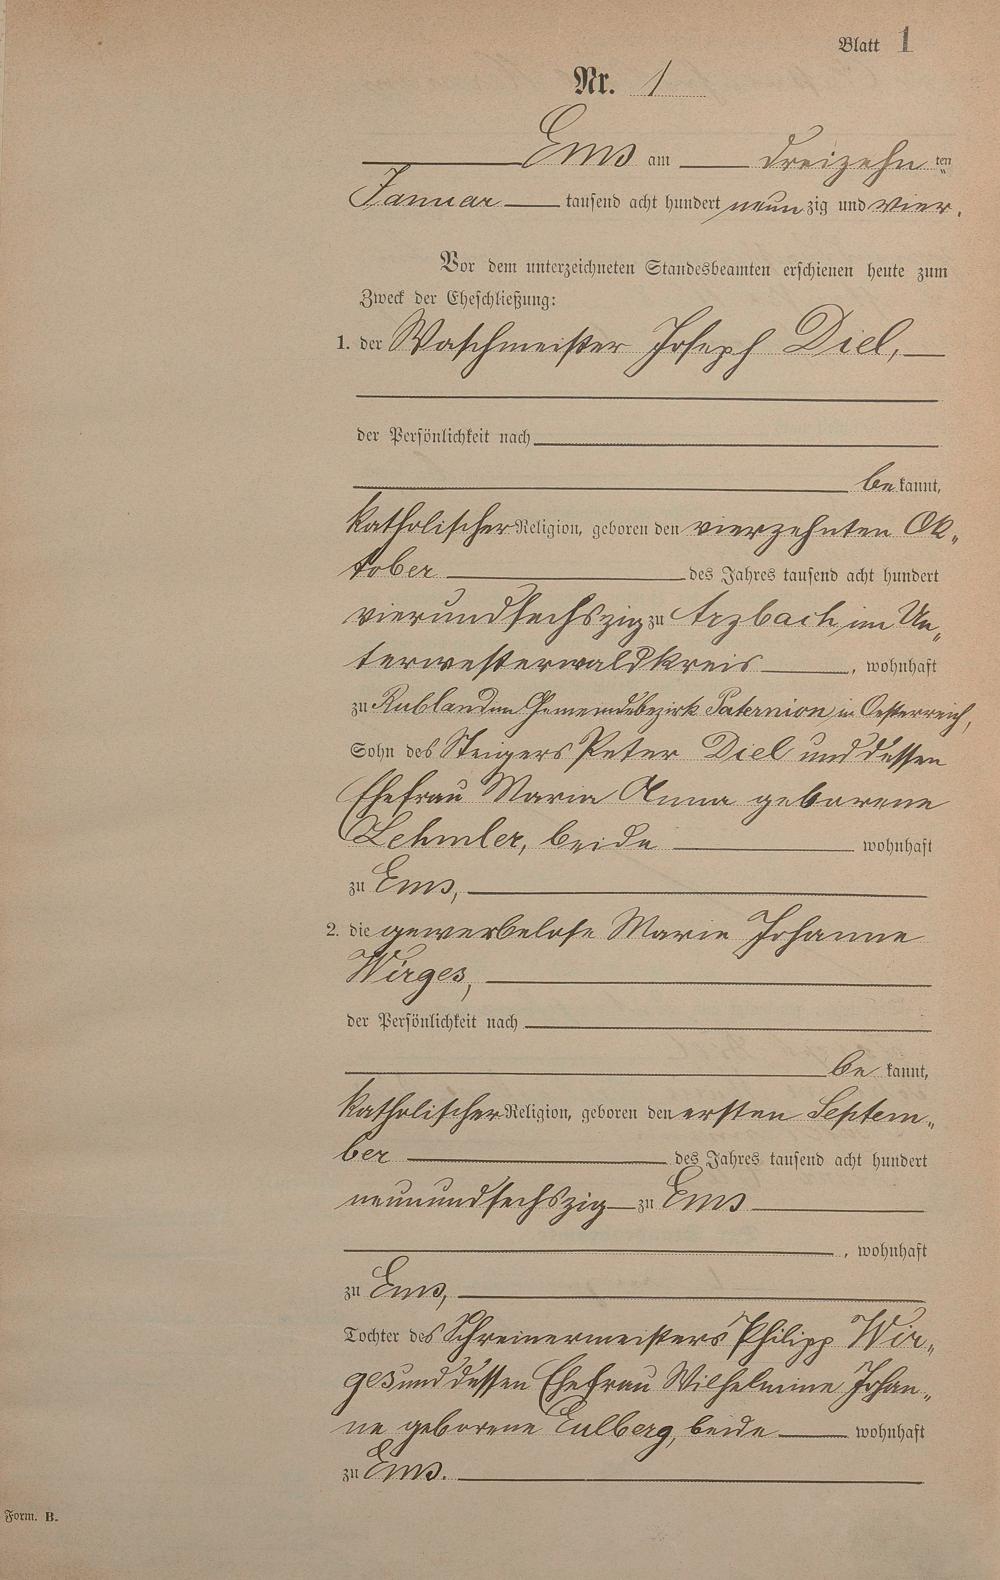 Blatt 1
Nr. 1
Ems am dreizehn ten
Januar tausend acht hundert neunzig und vier.
Vor dem unterzeichneten Standesbeamten erschienen heute zum
Zweck der Eheschließung:
1. der Waschmeister Joseph Diel,
der Persönlichkeit nach
bekannt,
katholischer Religion, geboren den vierzehnten Ok„
tober des Jahres tausend acht hundert
vierundsechszig zu Arzbach im Un„
terwesterwaldkreis, wohnhaft
zu Rubland im Gemeindebezirk Paternion in Oesterreich,
Sohn des Steigers Peter Diel und dessen
Ehefrau Maria Anna geborene
Lehmler, beide wohnhaft
zu Ems,
2. die gewerbelose Marie Johanne
Wirges,
der Persönlichkeit nach
bekannt,
katholischer Religion, geboren den ersten Septem„
ber des Jahres tausend acht hundert
neunundsechszig zu Ems
, wohnhaft
zu Ems,
Tochter des Schreinermeisters Philipp Wir„
ges und dessen Ehefrau Wilhelmine Johan„
ne geborene Eulberg, beide wohnhaft
zu Ems.
Form. B.